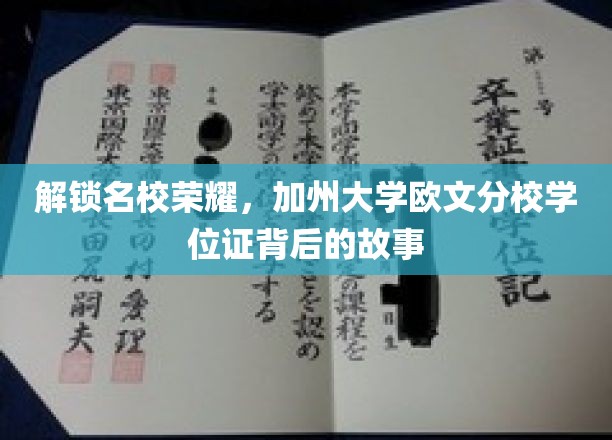 解锁名校荣耀，加州大学欧文分校学
位证背后的故事
第 号
卒業証 学位記
本学商学部 定の課程を
修めて本学 ことを認め
学士(商学)の学位 する
平成
東京国際大 村愛理
東京国際大 長田尻嗣夫